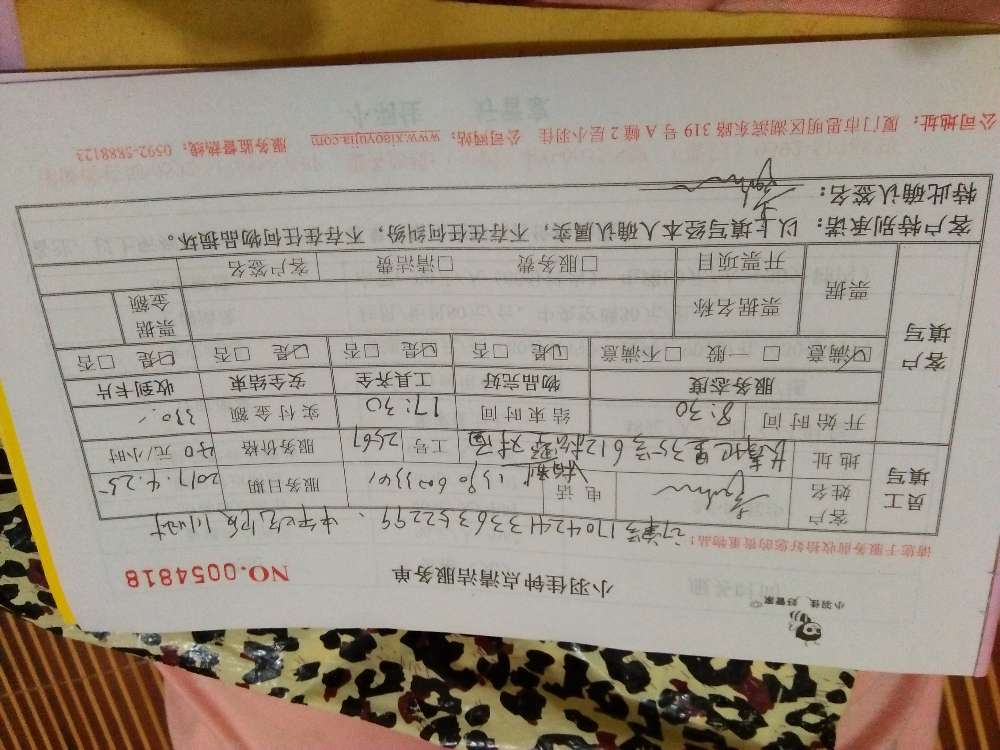 小羽佳 好管家
小羽佳钟点清洁服务单 NO.0054818
请您于服务前收拾好您的贵重物品！
订单号1704241336352299、中午吃饭1小时
员工填写 客户姓名 电话 服务日期 2017.4.25
地址 长青北里35号612 对面 工号 2567 服务价格 40元/小时
开始时间 8:30 结束时间 17:30 实付金额 330.
客户填写 服务态度 物品完好 工具齐全 安全结束 收到卡片
☑满意 □一般 □不满意 ☑是 □否 ☑是 □否 ☑是 □否 ☑是 □否
票据 票据名称 票据金额
开票项目 □服务费 □清洁费 客户签名
客户特别承诺：以上填写经本人确认属实，不存在任何纠纷，不存在任何物品损坏。
特此确认签名：
公司地址：厦门市思明区湖滨东路319号A幢2层小羽佳 公司网站：www.xiaoyujia.com 服务监督热线：0592-5888123